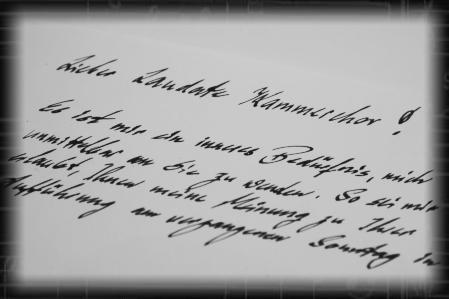 Lieber Laudate Kammerchor!
Es ist mir ein inneres Bedürfnis, mich
unmittelbar an Sie zu wenden. So sei mir
erlaubt, Ihnen meine Meinung zu Ihrer
Aufführung am vergangenen Sonntag in